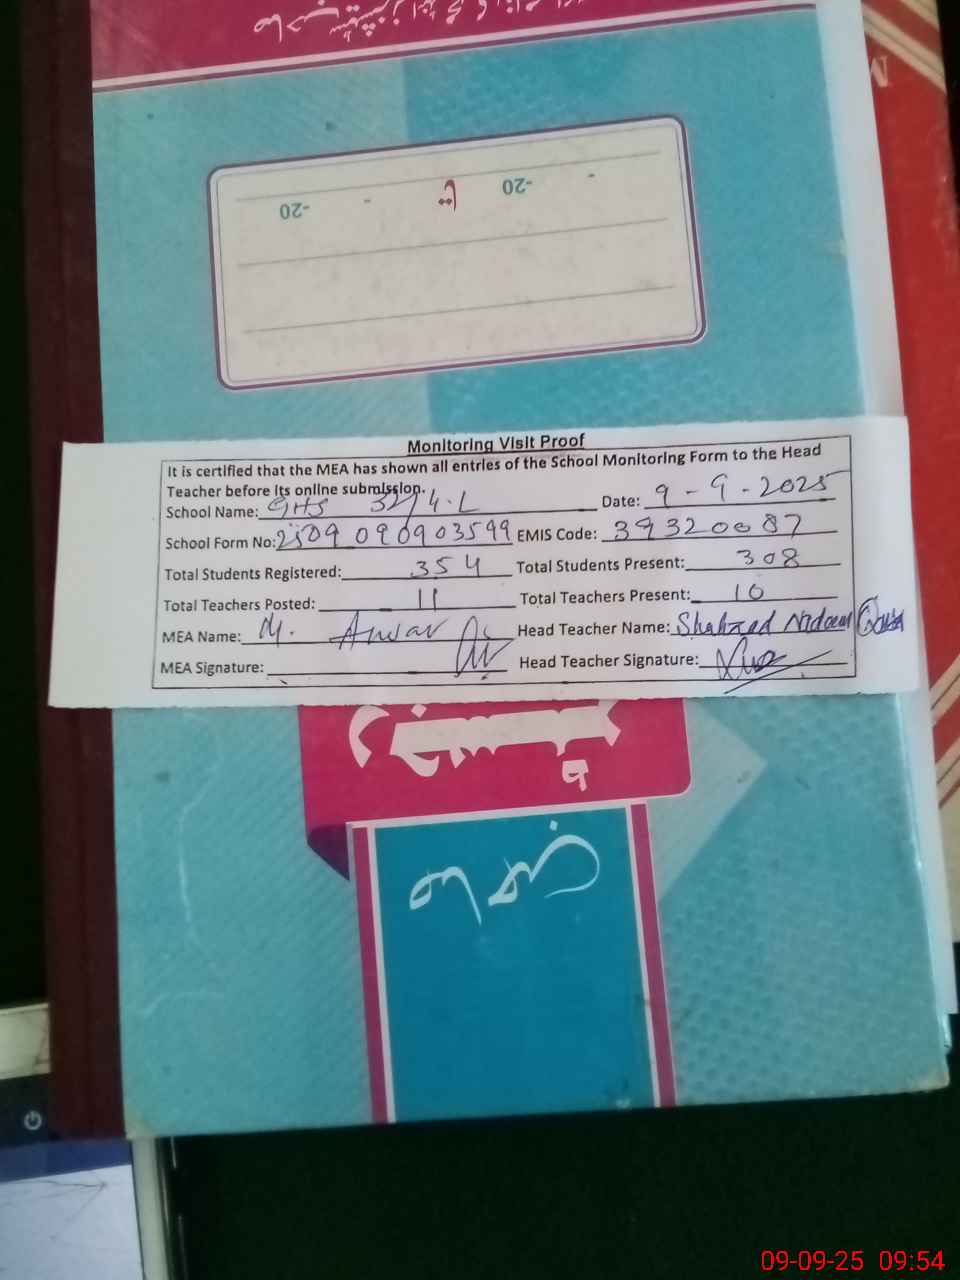 -20 - تا -20 -
Monitoring Visit Proof
It is certified that the MEA has shown all entries of the School Monitoring Form to the Head
Teacher before its online submission.
School Name: GHS 32/4.L Date: 9-9-2025
School Form No: 2509090903599 EMIS Code: 39320087
Total Students Registered: 354 Total Students Present: 308
Total Teachers Posted: 11 Total Teachers Present: 10
MEA Name: M. Anwar Head Teacher Name: Shahzad Nadeem
MEA Signature: Head Teacher Signature:
رجسٹر
09-09-25 09:54